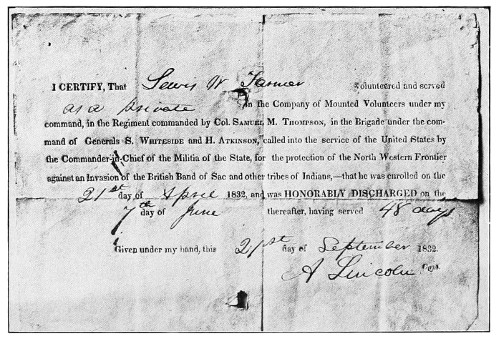 I CERTIFY, That Lewis W. Farmer volunteered and served
as a private in the Company of Mounted Volunteers under my
command, in the Regiment commanded by Col. SAMUEL M. THOMPSON, in the Brigade under the com-
mand of Generals S. WHITESIDE and H. ATKINSON, called into the service of the United States by
the Commander-in-Chief of the Militia of the State, for the protection of the North Western Frontier
against an Invasion of the British Band of Sac and other tribes of Indians,—that he was enrolled on the
21st day of April 1832, and was HONORABLY DISCHARGED on the
7th day of June thereafter, having served 48 days
Given under my hand, this 21st day of September 1832.
A Lincoln Capt.